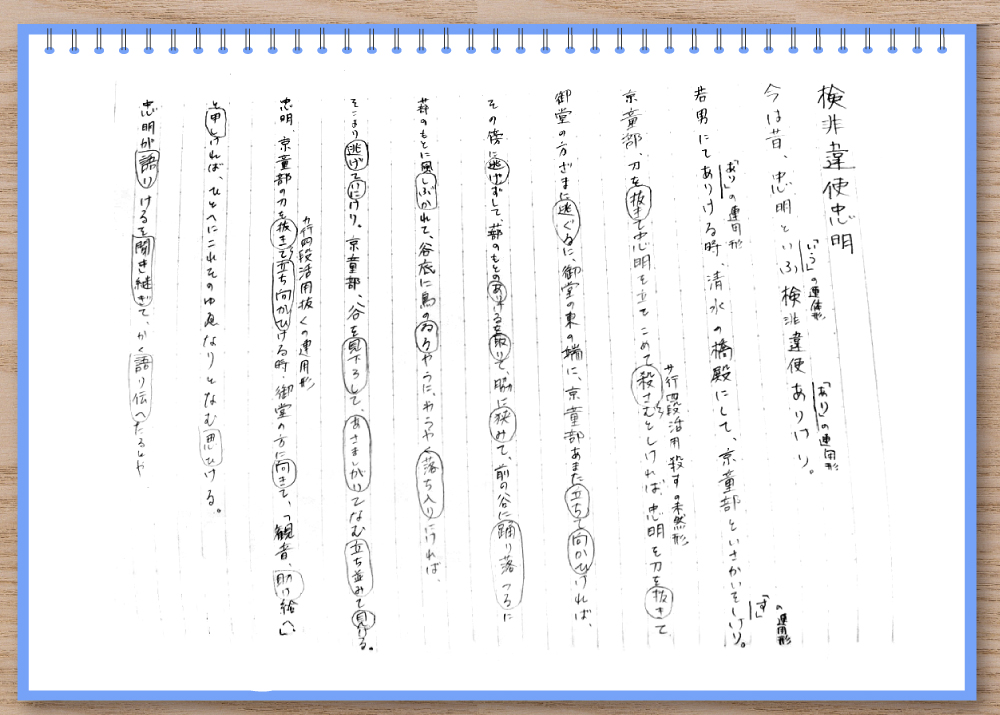 検非違使忠明
今は昔、忠明といふ検非違使ありけり。
「いう」の連体形
「あり」の連用形
若男にてありける時、清水の橋殿にして、京童部といさかいをしけり。
「あり」の連用形
「す」の連用形
京童部、刀を抜きて忠明を立てこめて殺さむとしければ、忠明も刀を抜きて
サ行四段活用 殺すの未然形
御堂の方ざまに逃ぐるに、御堂の東の端に、京童部あまた立ちて向かひければ、
その傍に逃げずして、蔀のもとのありけるを取りて、脇に狭めて、前の谷に踊り落つるに
蔀のもとに風しぶかれて、谷底に鳥のゐるやうに、やうやく落ち入りにければ、
そこより逃げていにけり。京童部、谷を見下ろして、あさましがりてなむ立ち並みて見ける。
忠明、京童部の刀を抜きて立ち向かひける時、御堂の方に向きて、「観音、助け給へ」
カ行四段活用抜くの連用形
と申しければ、ひとへにこれそのゆゑなりとなむ思ひける。
忠明が語りけるを聞き継ぎて、かく語り伝へたるとや